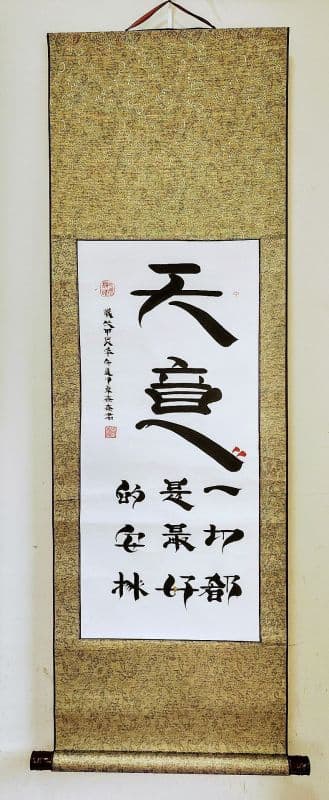 天意
一切都
是最好
的安排